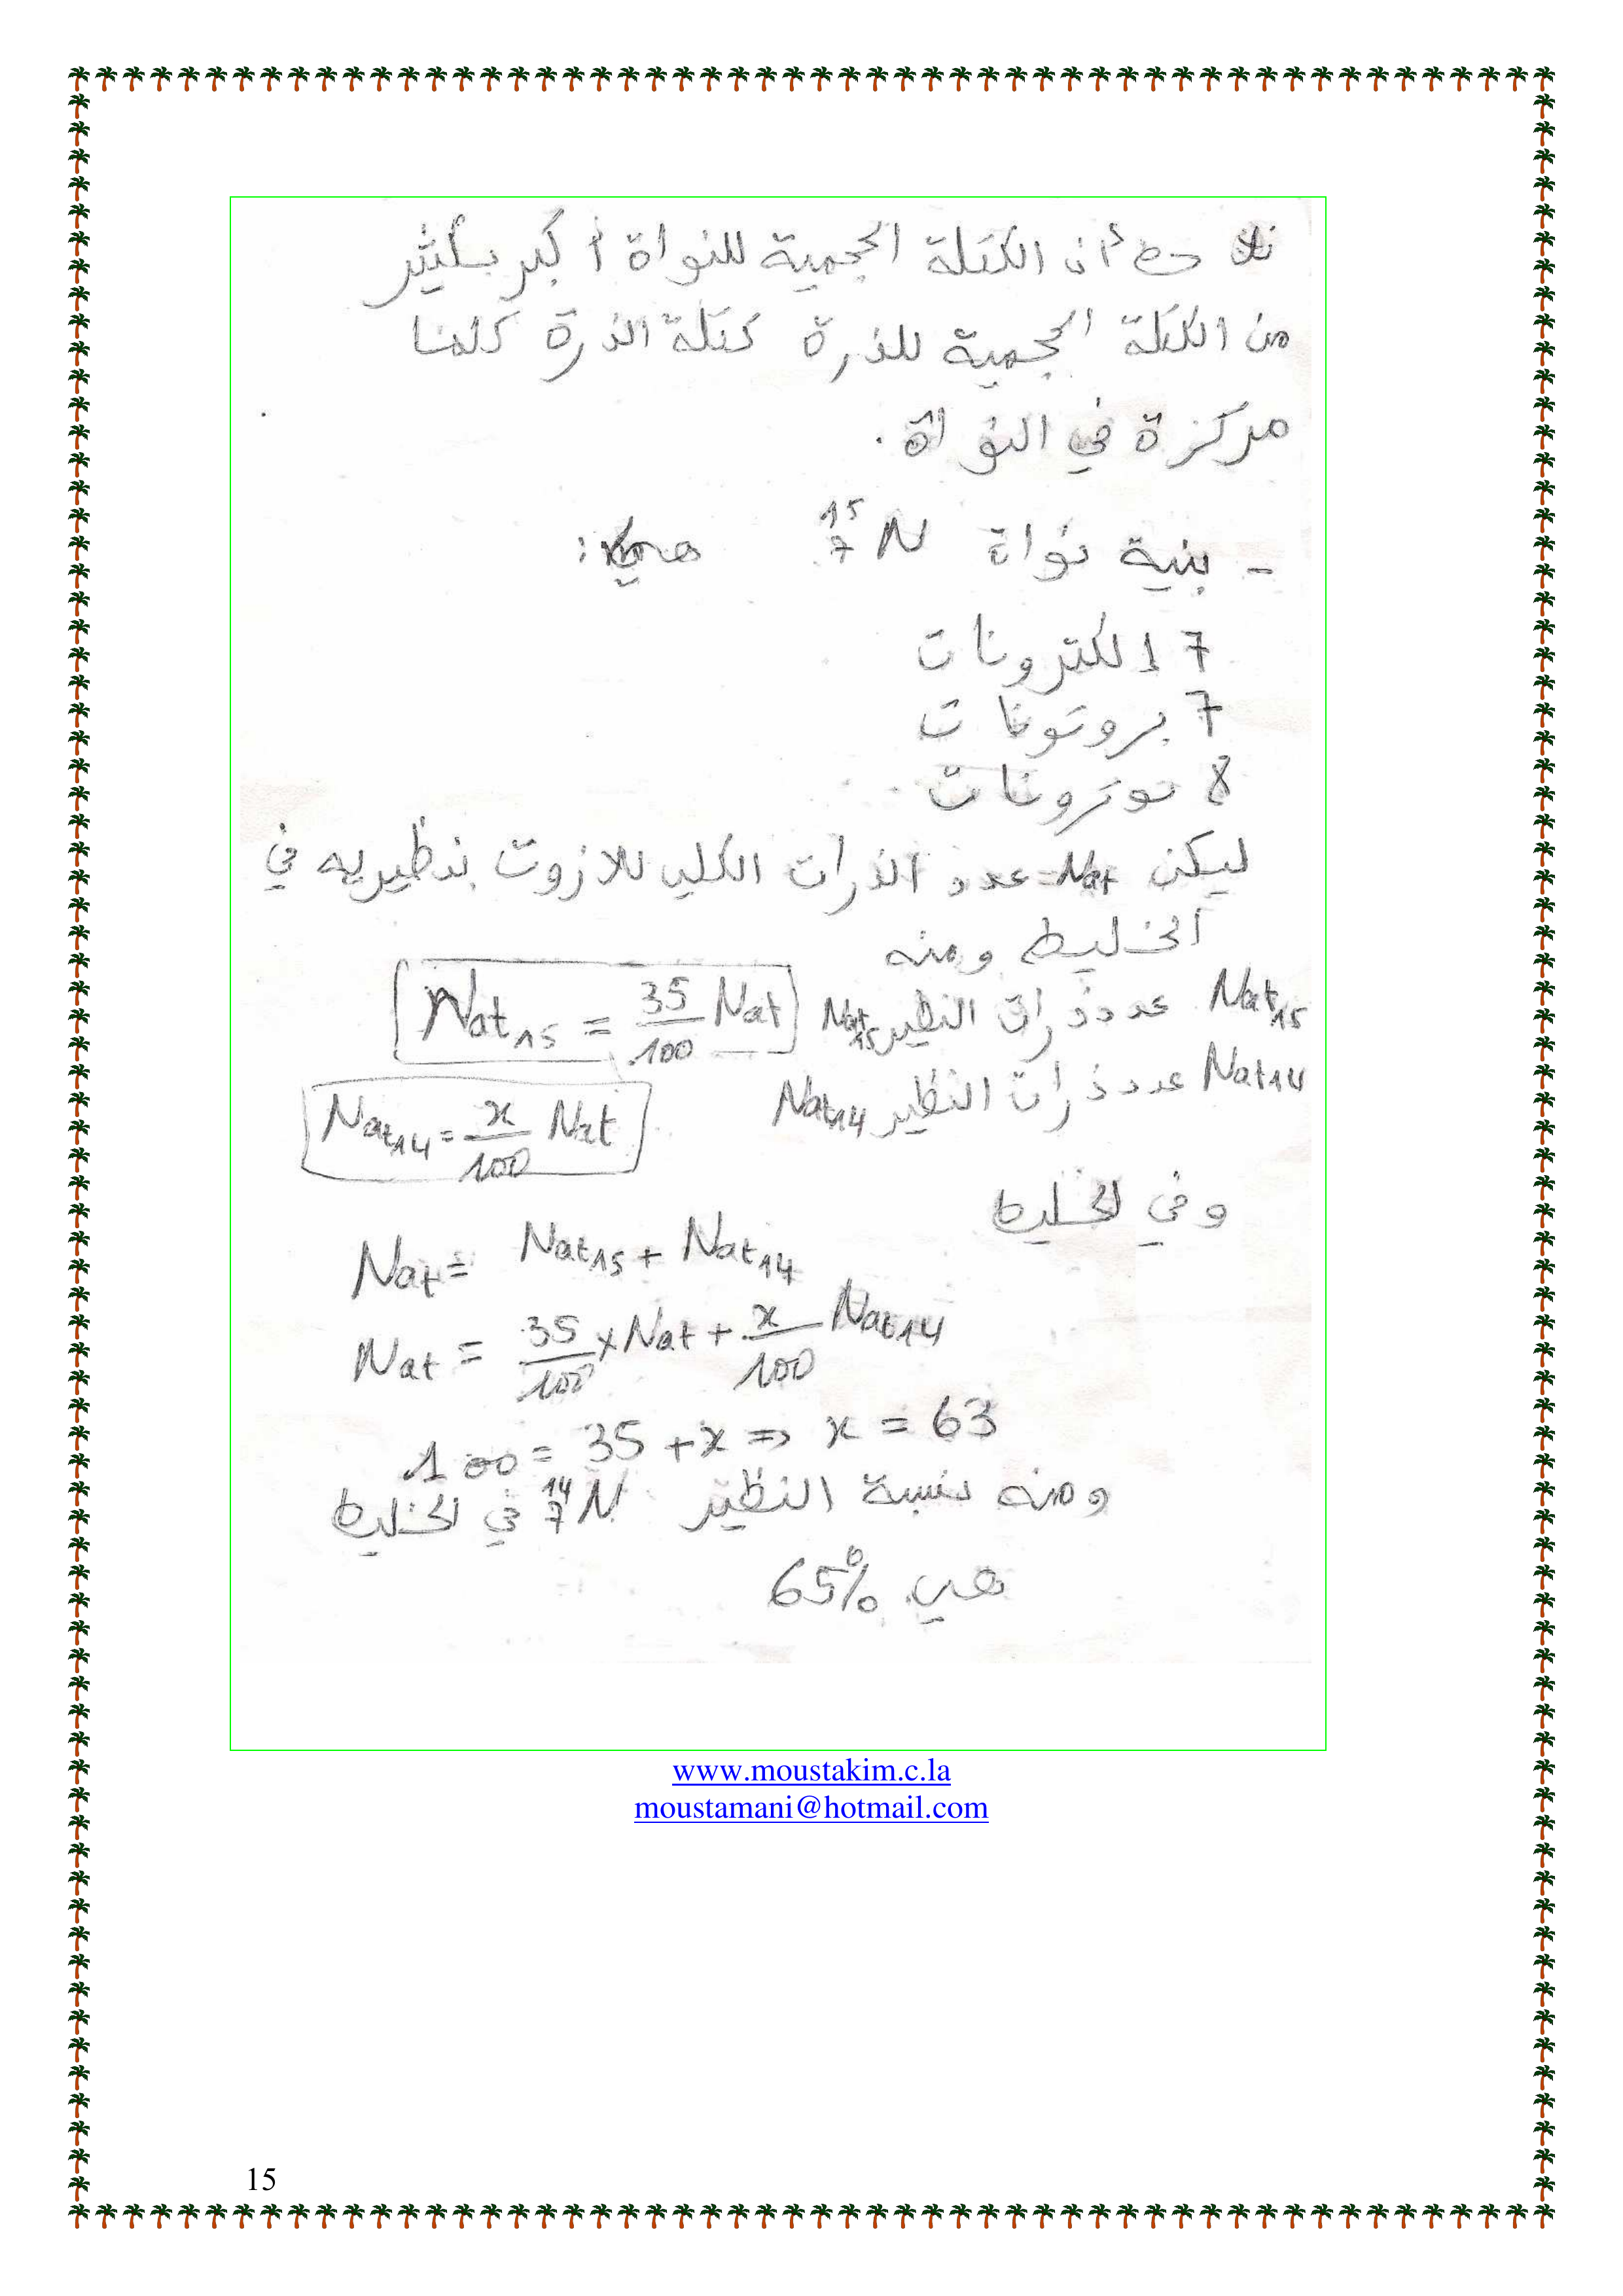 نلاحظ أن الكتلة الحجمية للنواة أكبر بكثير
من الكتلة الحجمية للذرة كتلة الذرة كلها
مركزة في النواة .
- بنية نواة ¹⁵₇N هي :
7 إلكترونات
7 بروتونات
8 نوترونات
ليكن Nat = عدد الذرات الكلي للازوت بنظيريه في
الخليط ومنه
Nat₁₅ عدد ذرات النظير Nat₁₅ Nat₁₅ = 35/100 Nat
Nat₁₄ عدد ذرات النظير Nat₁₄ Nat₁₄ = x/100 Nat
وفي الخليط
Nat = Nat₁₅ + Nat₁₄
Nat = 35/100 × Nat + x/100 Nat₁₄
100 = 35 + x ⇒ x = 63
ومنه نسبة النظير ¹⁴₇N في الخليط
هي 65%
www.moustakim.c.la
moustamani@hotmail.com
15